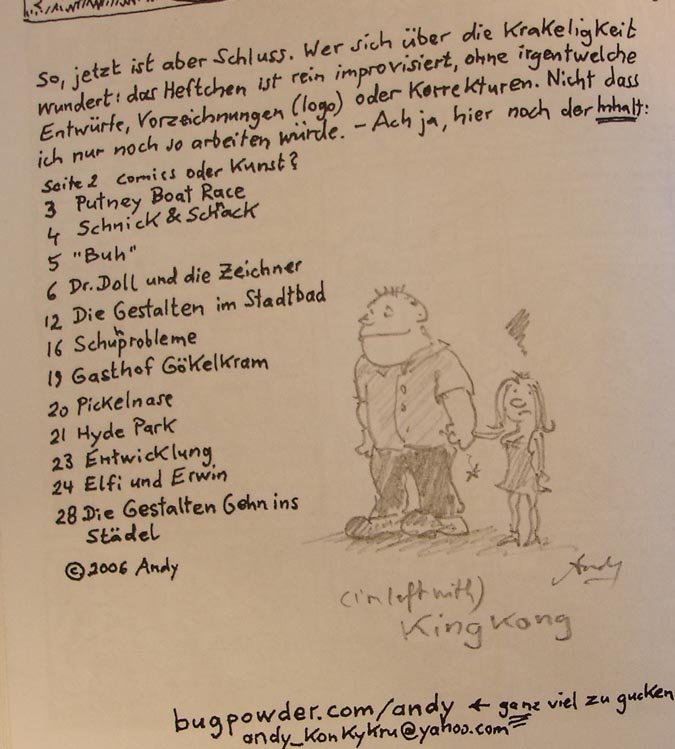 So, jetzt ist aber Schluss. Wer sich über die Krakeligkeit
wundert: das Heftchen ist rein improvisiert, ohne irgentwelche
Entwürfe, Vorzeichnungen (logo) oder Korrekturen. Nicht dass
ich nur noch so arbeiten würde. - Ach ja, hier noch der Inhalt:
Seite 2 Comics oder Kunst?
3 Putney Boat Race
4 Schnick & Schnack
5 "Buh"
6 Dr. Doll und die Zeichner
12 Die Gestalten im Stadtbad
16 Schuhprobleme
19 Gasthof Gökelkram
20 Pickelnase
21 Hyde Park
23 Entwicklung
24 Elfi und Erwin
28 Die Gestalten Gehn ins
Städel
© 2006 Andy
Andy
(I'm left with)
King Kong
bugpowder.com/andy ← ganz viel zu gucken
andy_konkykru@yahoo.com